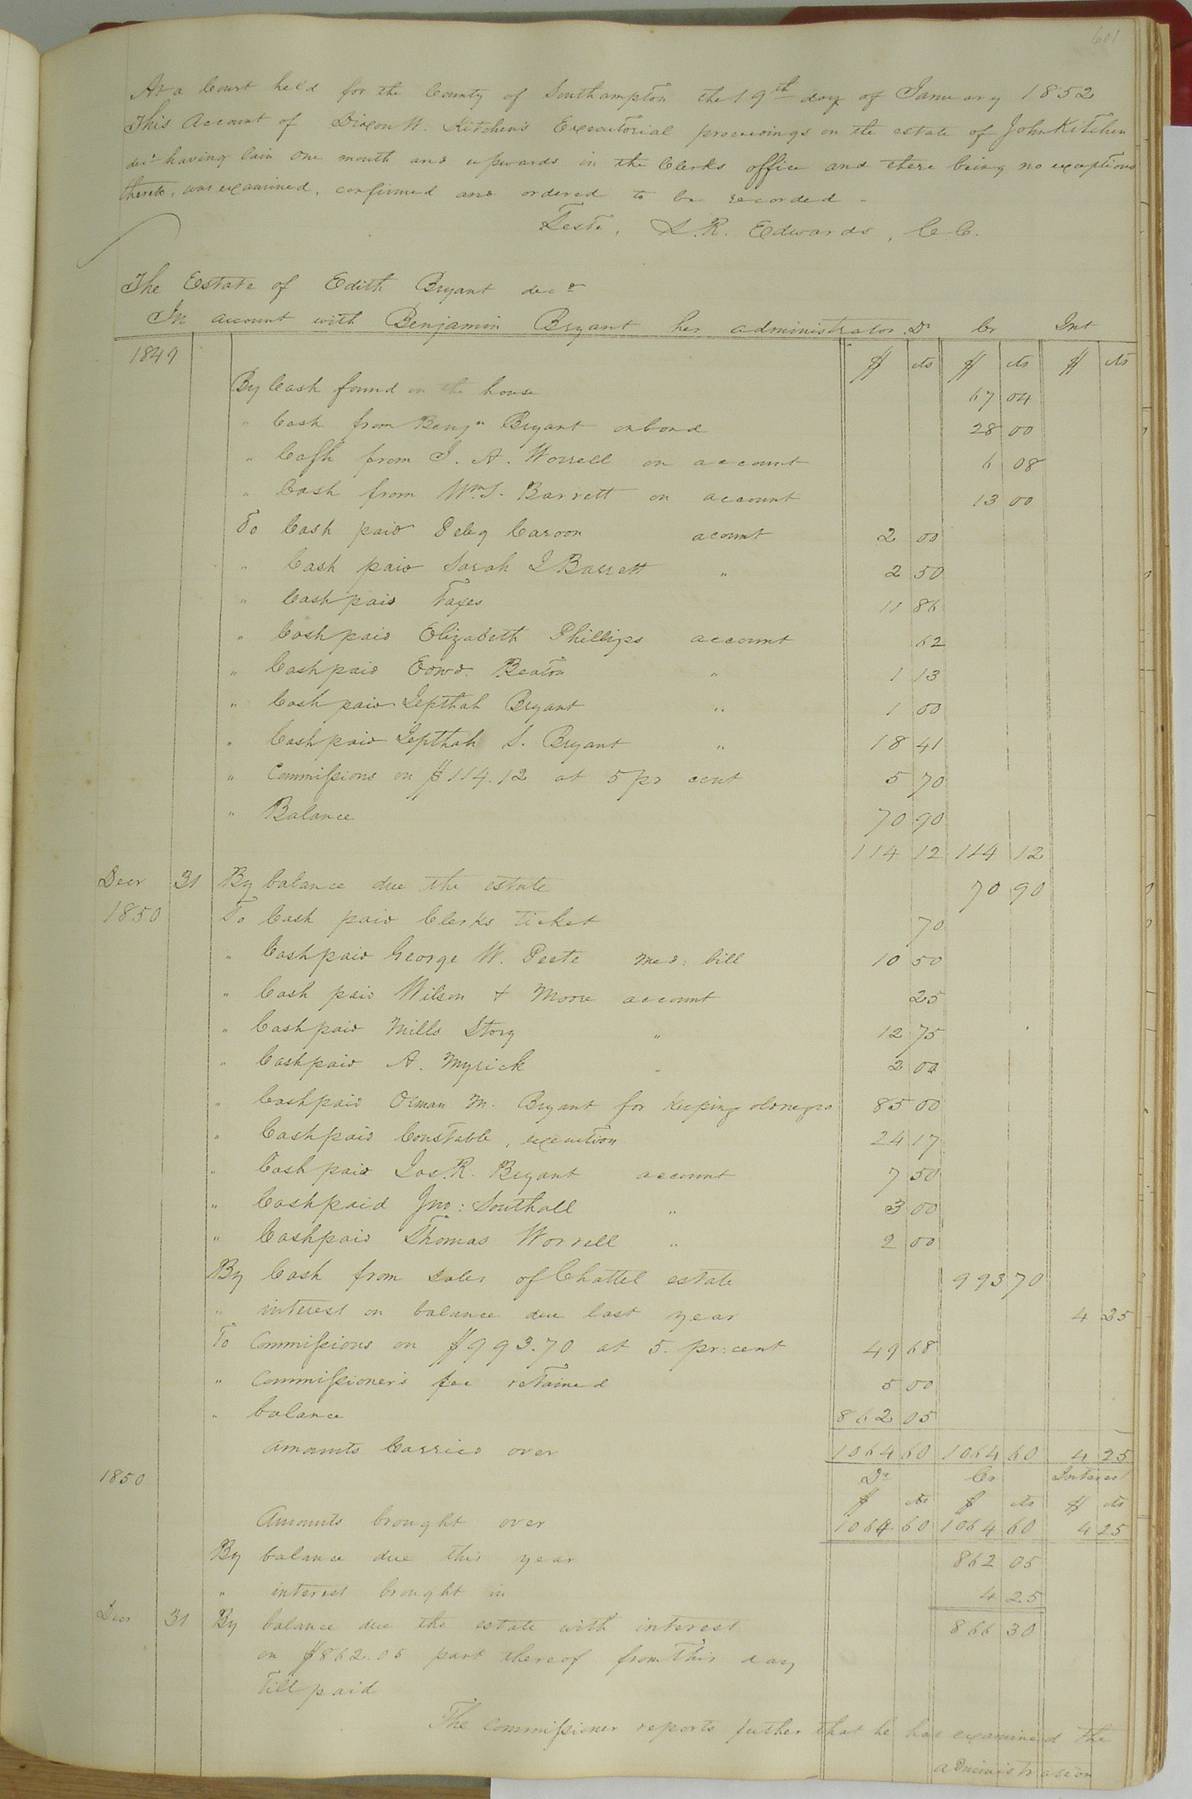 601
At a Court held for the County of Southampton the 19th day of January 1852
This Account of Dixon W. Kitchen's Executorial proceedings on the estate of John Kitchen
decd having lain one month and upwards in the Clerks office and there being no exceptions
thereto, was examined, confirmed and ordered to be recorded.
Teste, L. R. Edwards, C C.
The Estate of Edith Bryant decd
In account with Benjamin Bryant her administrator Dr Cr Int
1849 $ cts $ cts $ cts
By Cash found in the house 67 04
" Cash from Benjn Bryant on bond 28 00
" Cash from J. A. Worrell on account 6 08
" Cash from Wm S. Barrett on account 13 00
To Cash paid Peleg acount 2 00
" Cash paid Sarah J Barrett " 2 50
" Cash paid Taxes 11 86
" Cash paid Elizabeth Phillips account 62
" Cash paid Edwd. Beaton " 1 13
" Cash paid Jepthah Bryant " 1 00
" Cash paid Jepthah S. Bryant " 18 41
" Commissions on $114.12 at 5 pr cent 5 70
" Balance 70 90
114 12 114 12
Decr 31 By balance due the estate 70 90
1850 To Cash paid Clerks ticket 70
" Cash paid George W. Peete Med. bill 10 50
" Cash paid Wilson & Moore account 25
" Cash paid Mills Story " 12 75
" Cash paid A. Myrick " 2 00
" Cash paid Orman M. Bryant for keeping old negro 85 00
" Cash paid Constable, execution 24 17
" Cash paid Jas. R. Bryant account 7 50
" Cash paid Jno: Southall " 3 00
" Cash paid Thomas Worrell " 2 00
By Cash from sales of Chattel estate 993 70
" interest on balance due last year 4 25
To Commissions on $993.70 at 5. pr: cent 49 68
" Commissioner's fee retained 5 00
" balance 862 05
amounts Carried over 1064 60 1064 60 4 25
1850 Dr Cr Interest
$ cts $ cts $ cts
Amounts brought over 1064 60 1064 60 4 25
By balance due this year 862 05
" interest brought in 4 25
Decr 31 By balance due the estate with interest 866 30
on $862.05 part thereof from this day
till paid
The Commissioner reports futher that he has examined the
administration